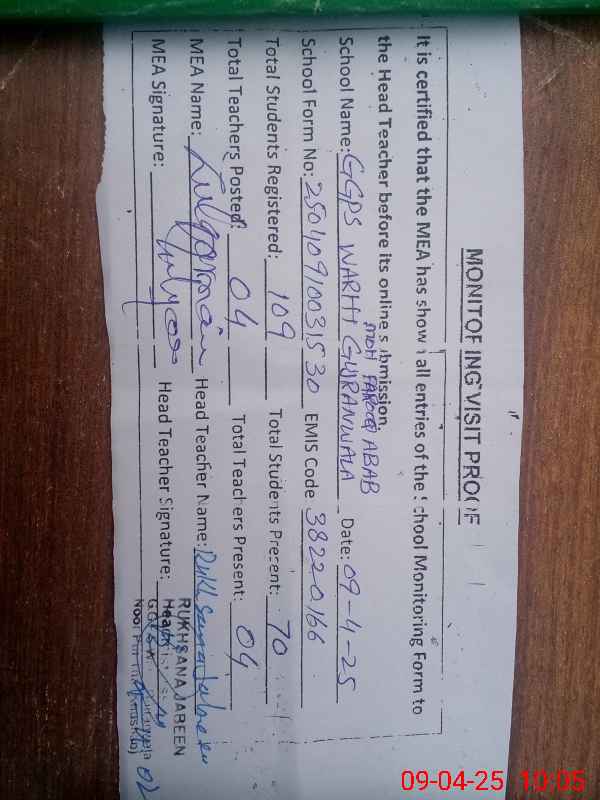 MONITORING VISIT PROOF
It is certified that the MEA has shown all entries of the School Monitoring Form to
the Head Teacher before its online submission.
MOH FAROOQ ABAB
School Name: GGPS WARHI GUJRANWALA Date: 09-4-25
School Form No: 250409100031530 EMIS Code 38220166
Total Students Registered: 109 Total Students Present: 70
Total Teachers Posted: 04 Total Teachers Present: 04
MEA Name: Head Teacher Name: Rukhsana Jabeen
MEA Signature: Head Teacher Signature:
RUKHSANA JABEEN
09-04-25 10:05